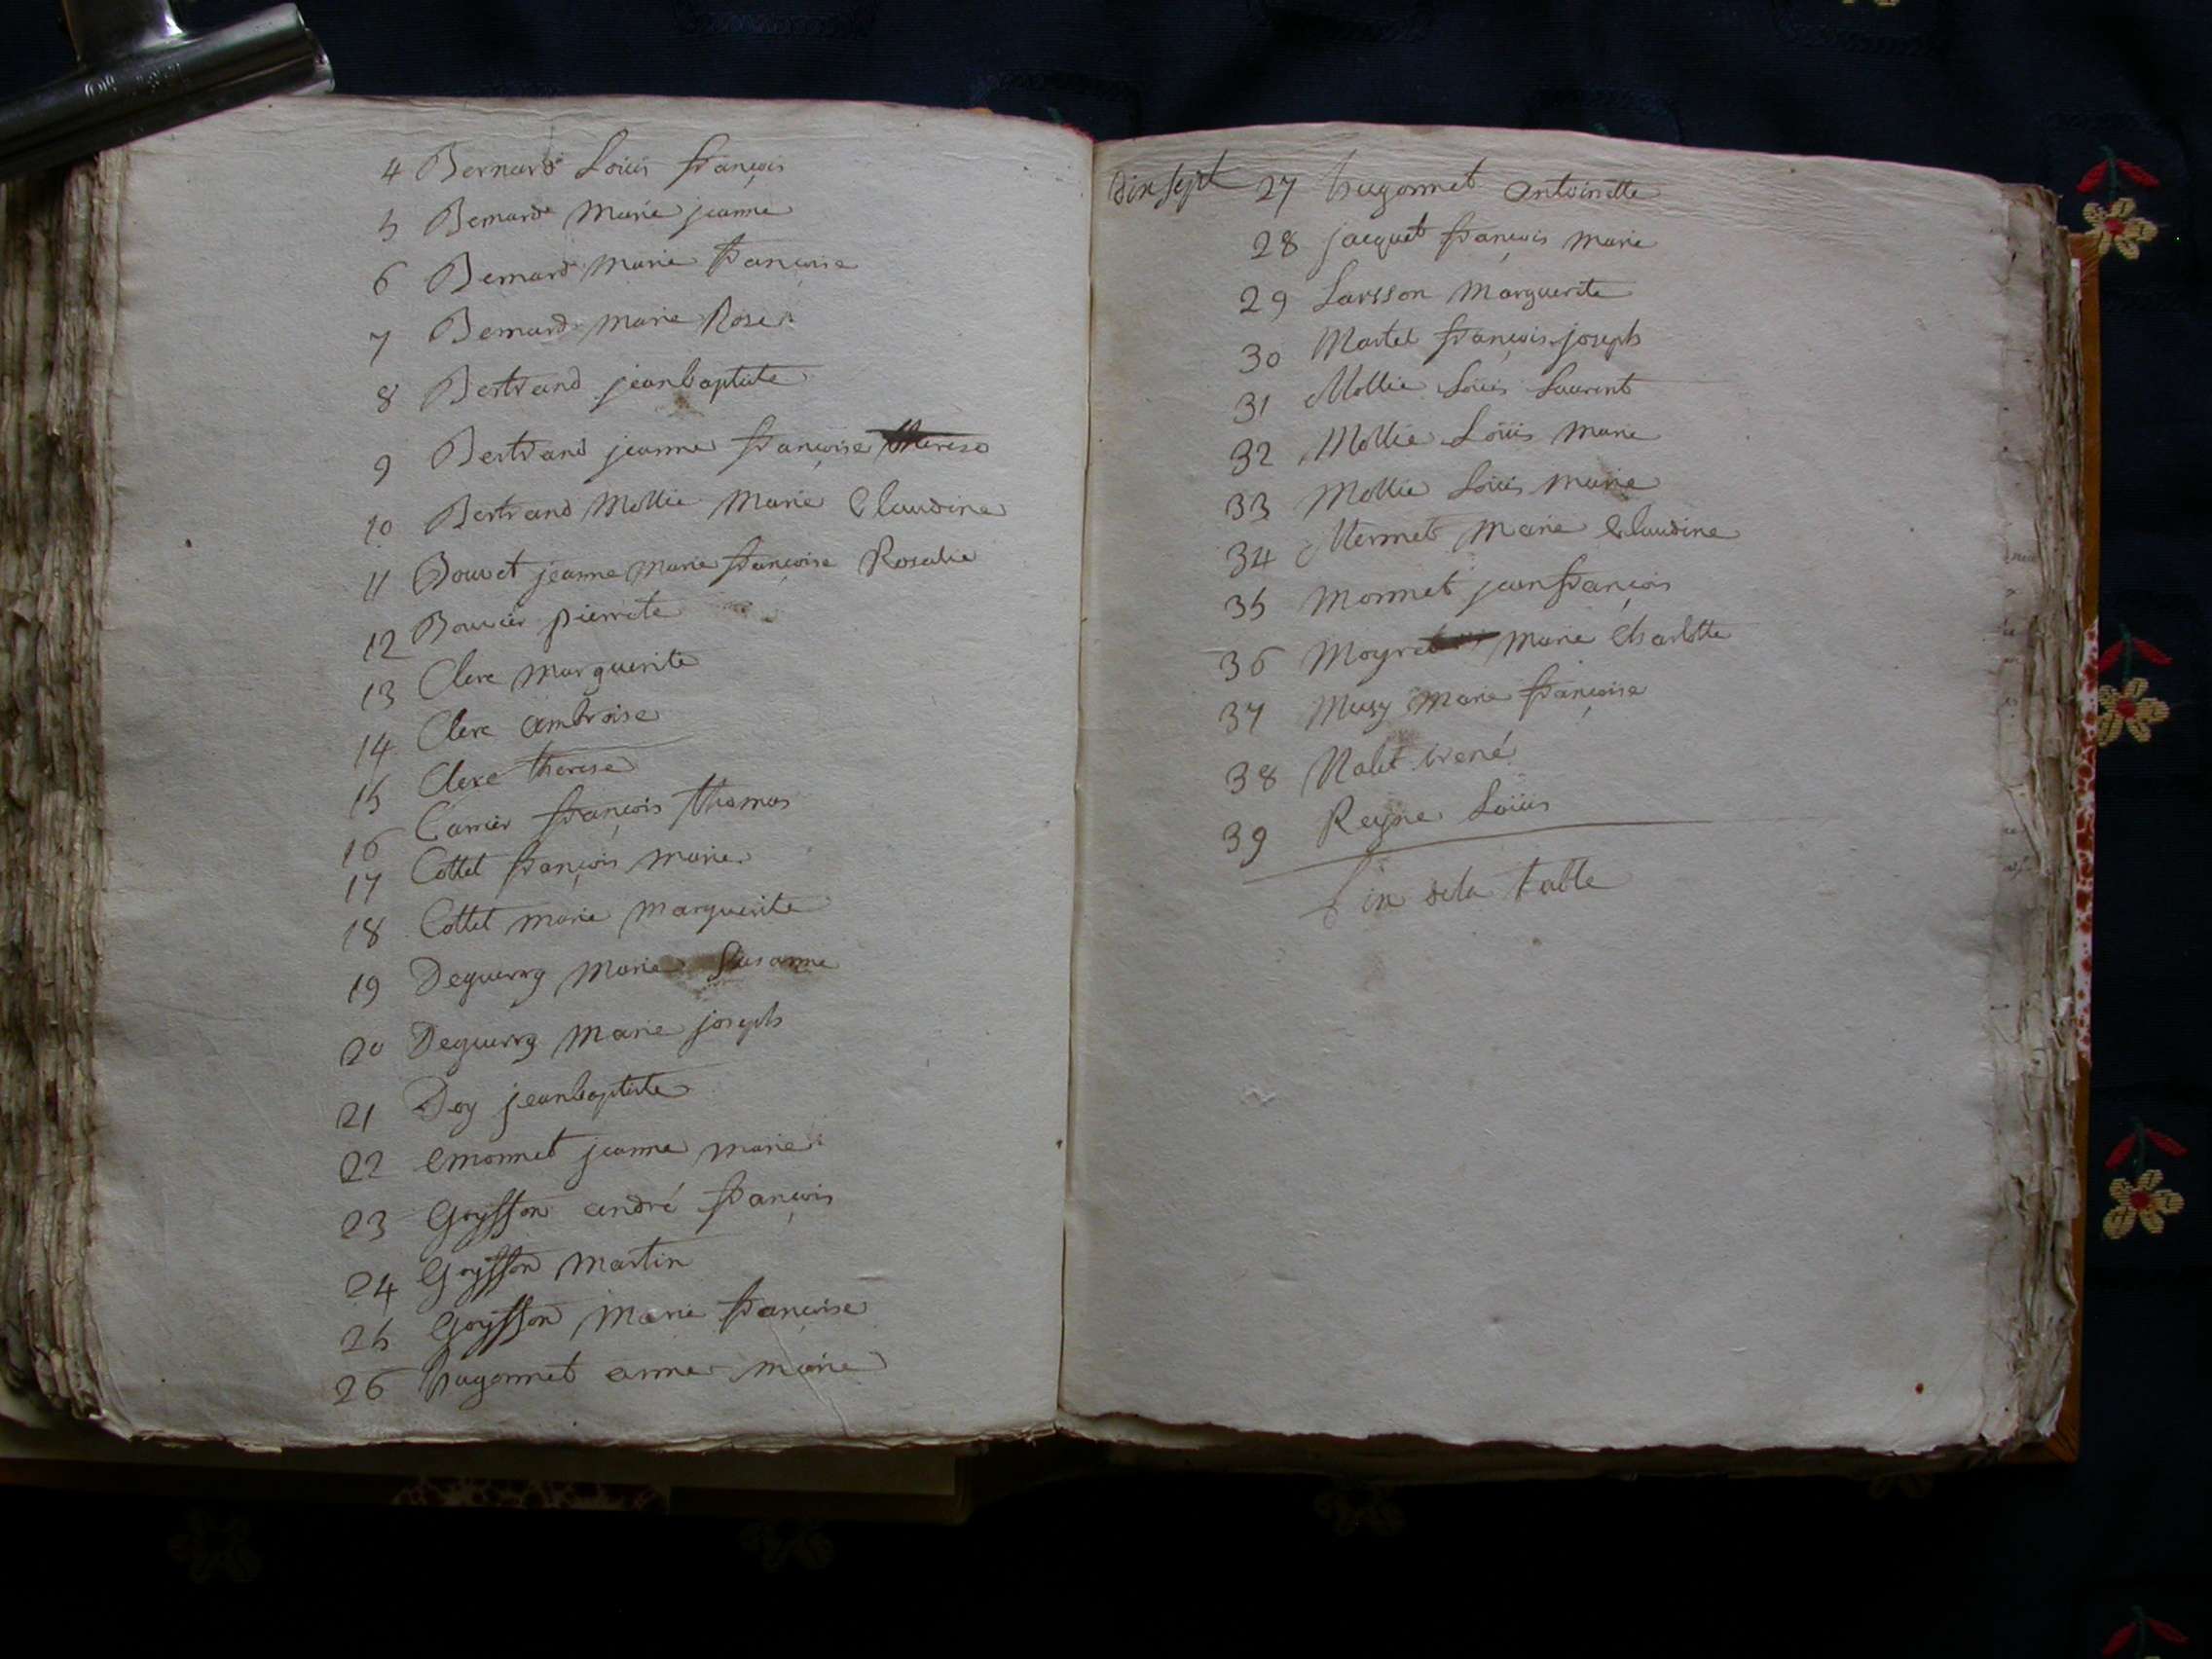 4 Bernard Loüis françois
5 Bernard Marie jeanne
6 Bernard Marie françoise
7 Bernard Marie Rose
8 Bertrand jeanbaptiste
9 Bertrand jeanne françoise therese
10 Bertrand Mollie Marie Claudine
11 Bouvet jeanne Marie françoise Rosalie
12 Bouvier pierrete
13 Clerc Marguerite
14 Clerc ambroise
15 Clerc therese
16 Carrier françois thomas
17 Cottet françois marie
18 Cottet marie Marguerite
19 Deguerry Marie Susanne
20 Deguerry Marie joseph
21 Doy jeanbaptiste
22 emonnet jeanne marie
23 Goysson andré françois
24 Goysson Martin
25 Goysson Marie françoise
26 hugonnet anne marie
dix sept 27 hugonnet antoinette
28 jacquet françois marie
29 Larsson Marguerite
30 Martel françois joseph
31 Mollie Loüis Laurent
32 Mollie Loüis Marie
33 Mollie Loüis Marie
34 Mermet Marie Claudine
35 Monnet jean françois
36 Moyret Marie Charlotte
37 Musy Marie françoise
38 Nalet irené
39 Reyne Loüis
fin dela table